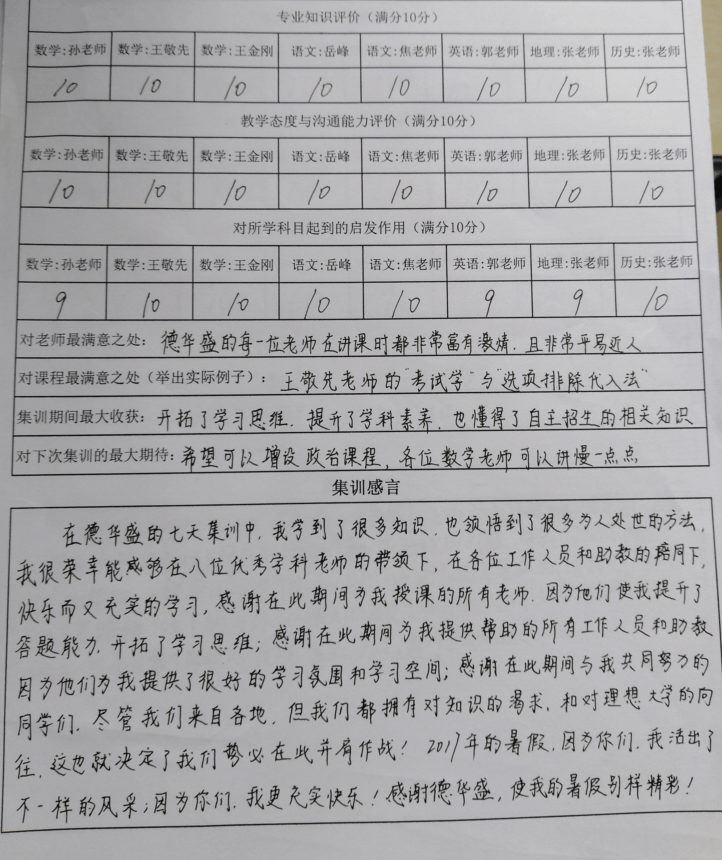 专业知识评价（满分10分）
数学:孙老师 数学:王敬先 数学:王金刚 语文:岳峰 语文:焦老师 英语:郭老师 地理:张老师 历史:张老师
10 10 10 10 10 10 10 10
教学态度与沟通能力评价（满分10分）
数学:孙老师 数学:王敬先 数学:王金刚 语文:岳峰 语文:焦老师 英语:郭老师 地理:张老师 历史:张老师
10 10 10 10 10 10 10 10
对所学科目起到的启发作用（满分10分）
数学:孙老师 数学:王敬先 数学:王金刚 语文:岳峰 语文:焦老师 英语:郭老师 地理:张老师 历史:张老师
9 10 10 10 10 9 9 10
对老师最满意之处：德华盛的每一位老师在讲课时都非常富有激情，且非常平易近人
对课程最满意之处（举出实际例子）：王敬先老师的“考试学”与“选项排除代入法”
集训期间最大收获：开拓了学习思维，提升了学科素养，也懂得了自主招生的相关知识
对下次集训的最大期待：希望可以增设政治课程，各位数学老师可以讲慢一点点
集训感言
在德华盛的七天集训中，我学到了很多知识，也领悟到了很多为人处世的方法，
我很荣幸能感够在八位优秀学科老师的带领下，在各位工作人员和助教的陪同下，
快乐而又充实的学习，感谢在此期间为我授课的所有老师，因为他们使我提升了
答题能力，开拓了学习思维；感谢在此期间为我提供帮助的所有工作人员和助教
因为他们为我提供了很好的学习氛围和学习空间；感谢在此期间与我共同努力的
同学们，尽管我们来自各地，但我们都拥有对知识的渴求，和对理想大学的向
往，这也就决定了我们势必在此并肩作战！2017年的暑假，因为你们，我活出了
不一样的风采；因为你们，我更充实快乐！感谢德华盛，使我的暑假别样精彩！